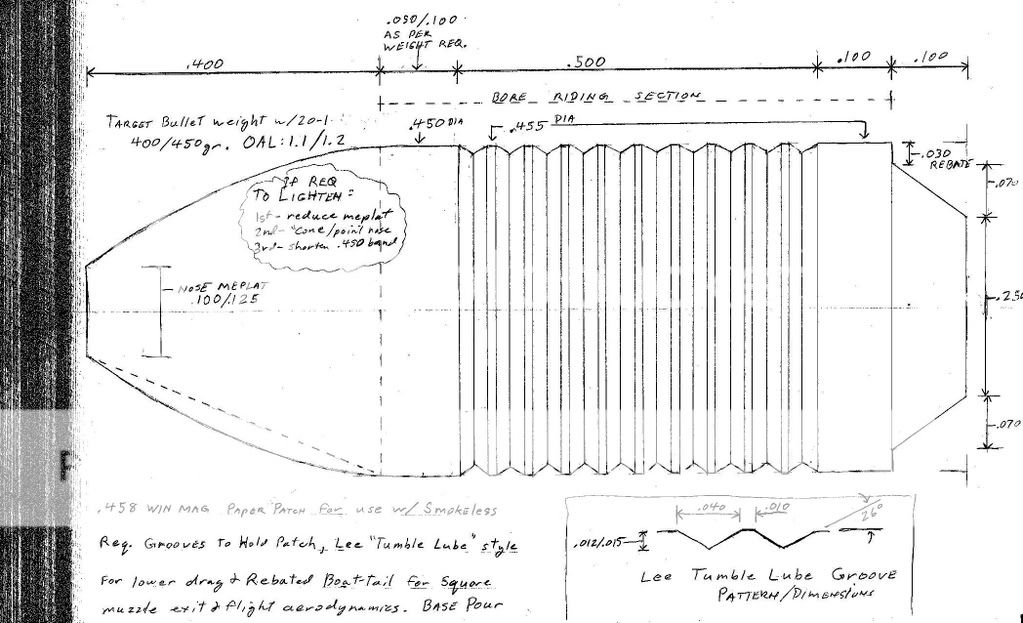 .050/.100
AS PER
WEIGHT REQ.
.400
.500
.100
.100
BORE RIDING SECTION
TARGET Bullet weight w/20-1
400/450gr. OAL: 1.1/1.2
.450 DIA
.455 DIA
.030
REBATE
.070
IF REQ
TO LIGHTEN:
1st - reduce meplat
2nd - "cone/point nose
3rd - shorten .450 band
NOSE MEPLAT
.100/.125
.250
.070
.458 WIN MAG PAPER PATCH for use w/ Smokeless
Req. GROOVES TO Hold PATCH, Lee "Tumble Lube" style
For lower drag & Rebated Boat-tail for Square
muzzle exit & flight aerodynamics. BASE POUR
.040
.010
26°
.012/.015
Lee Tumble Lube GROOVE
PATTERN/DIMENSIONS